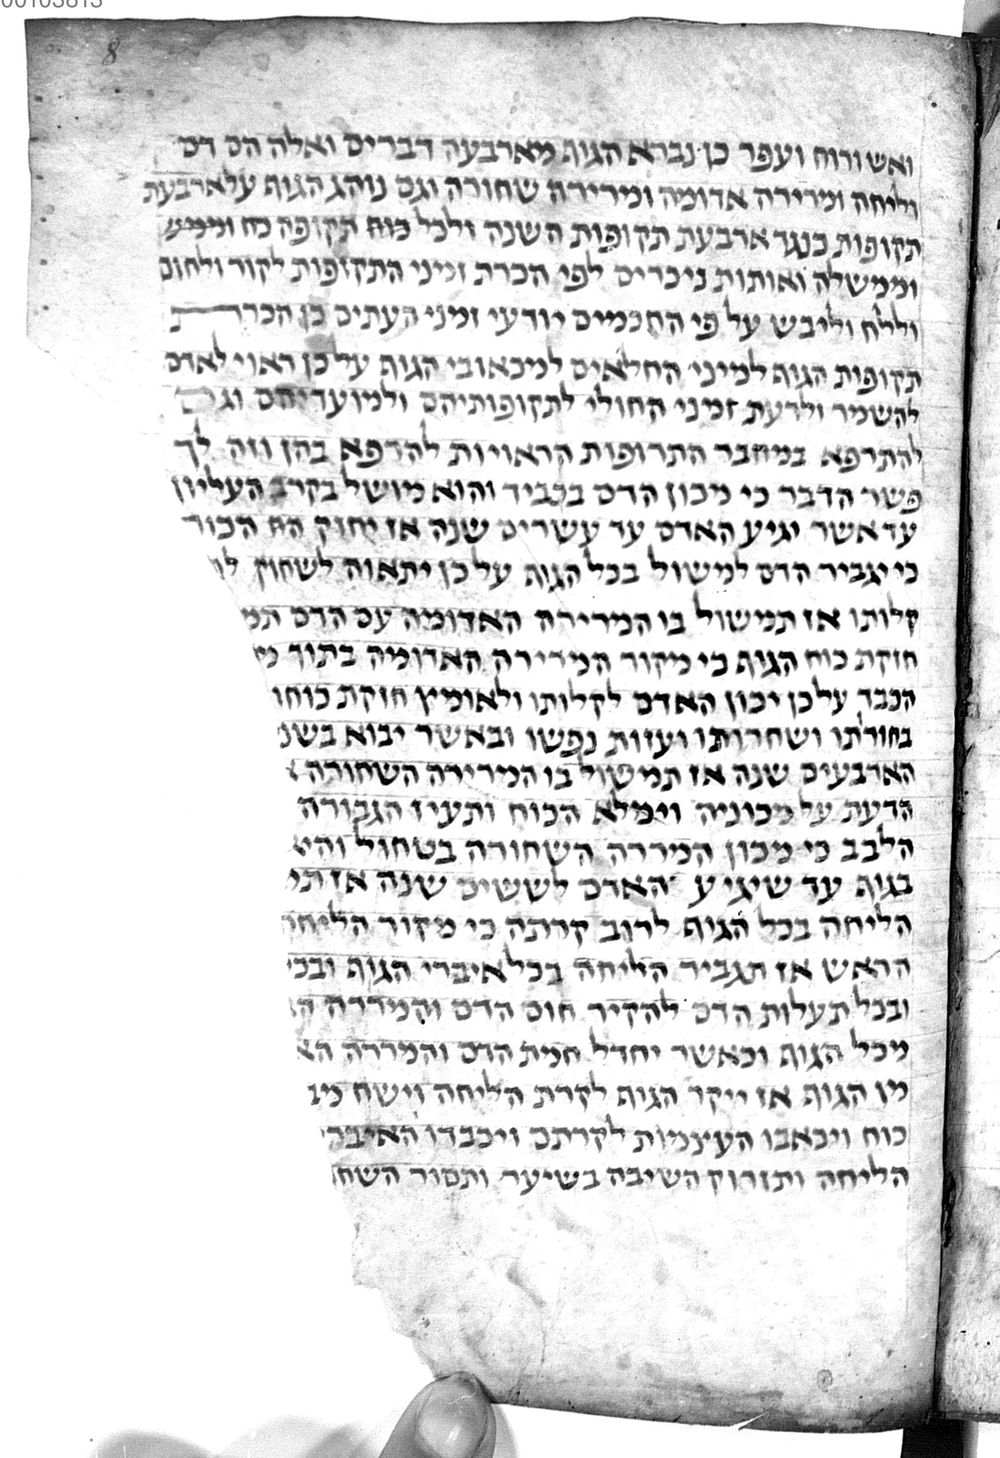 00103813
8
ואש ורוח ועפר כן נברא הגוף מארבעה דברים ואלה הם דם
וליחה ומרירה אדומה ומרירה שחורה וגם נוהג הגוף על ארבעת
תקופות כנגד ארבעת תקופות השנה ולכל כוח תקופה כח וממש
וממשלה ואותות ניכרים לפי הכרת זמיני התקופות לקור ולחום
וללח וליבש על פי החכמים יודעי זמני העתים כן הכרת
תקופות הגוף למיני החלאים למכאובי הגוף על כן ראוי לאדם
להשמר ולדעת זמיני החולי לתקופותיהם ולמועדיהם
להתרפא במחבר התרופות הראויות להרפא בהן וזה לך
פשר הדבר כי מכון הדם בכביד והוא מושל בקרב העליון
עד אשר יגיע האדם עד עשרים שנה אז יחזק הח הכור
כי יגביר הדם למשול בכל הגוף על כן יתאוה לשחוק
קלותו אז תמשול בו המרירה האדומה עם הדם תמ
חזקת כוח הגוף כי מקור המרירה האדומה בתוך
הכבד על כן יכון האדם לקלותו ולאומיץ חזקת כוחו
בחורתו ושחרותו ועזות נפשו ובאשר יבוא בשנ
הארבעים שנה אז תמשול בו המרירה השחורה
הדעת על מכוניה וימלא הכוח ותעיז הגבורה
הלבב כי מכון המררה השחורה בטחול והי
בגוף עד שיגיע האדם לששים שנה אז תי
הליחה בכל הגוף לרוב קרתה כי מקור הליחה
הראש אז תגביר הליחה בכל איברי הגוף ובכ
ובכל תעלות הדם להקיר חום הדם והמררה הא
מכל הגוף וכאשר יחדל חמת הדם והמררה הא
מן הגוף אז ייקר הגוף לקרת הליחה וישח
כוח ויכאבו העיצמות לקרתם ויכבדו האיברי
הליחה ותזרוק השיבה בשיער ותסור השח